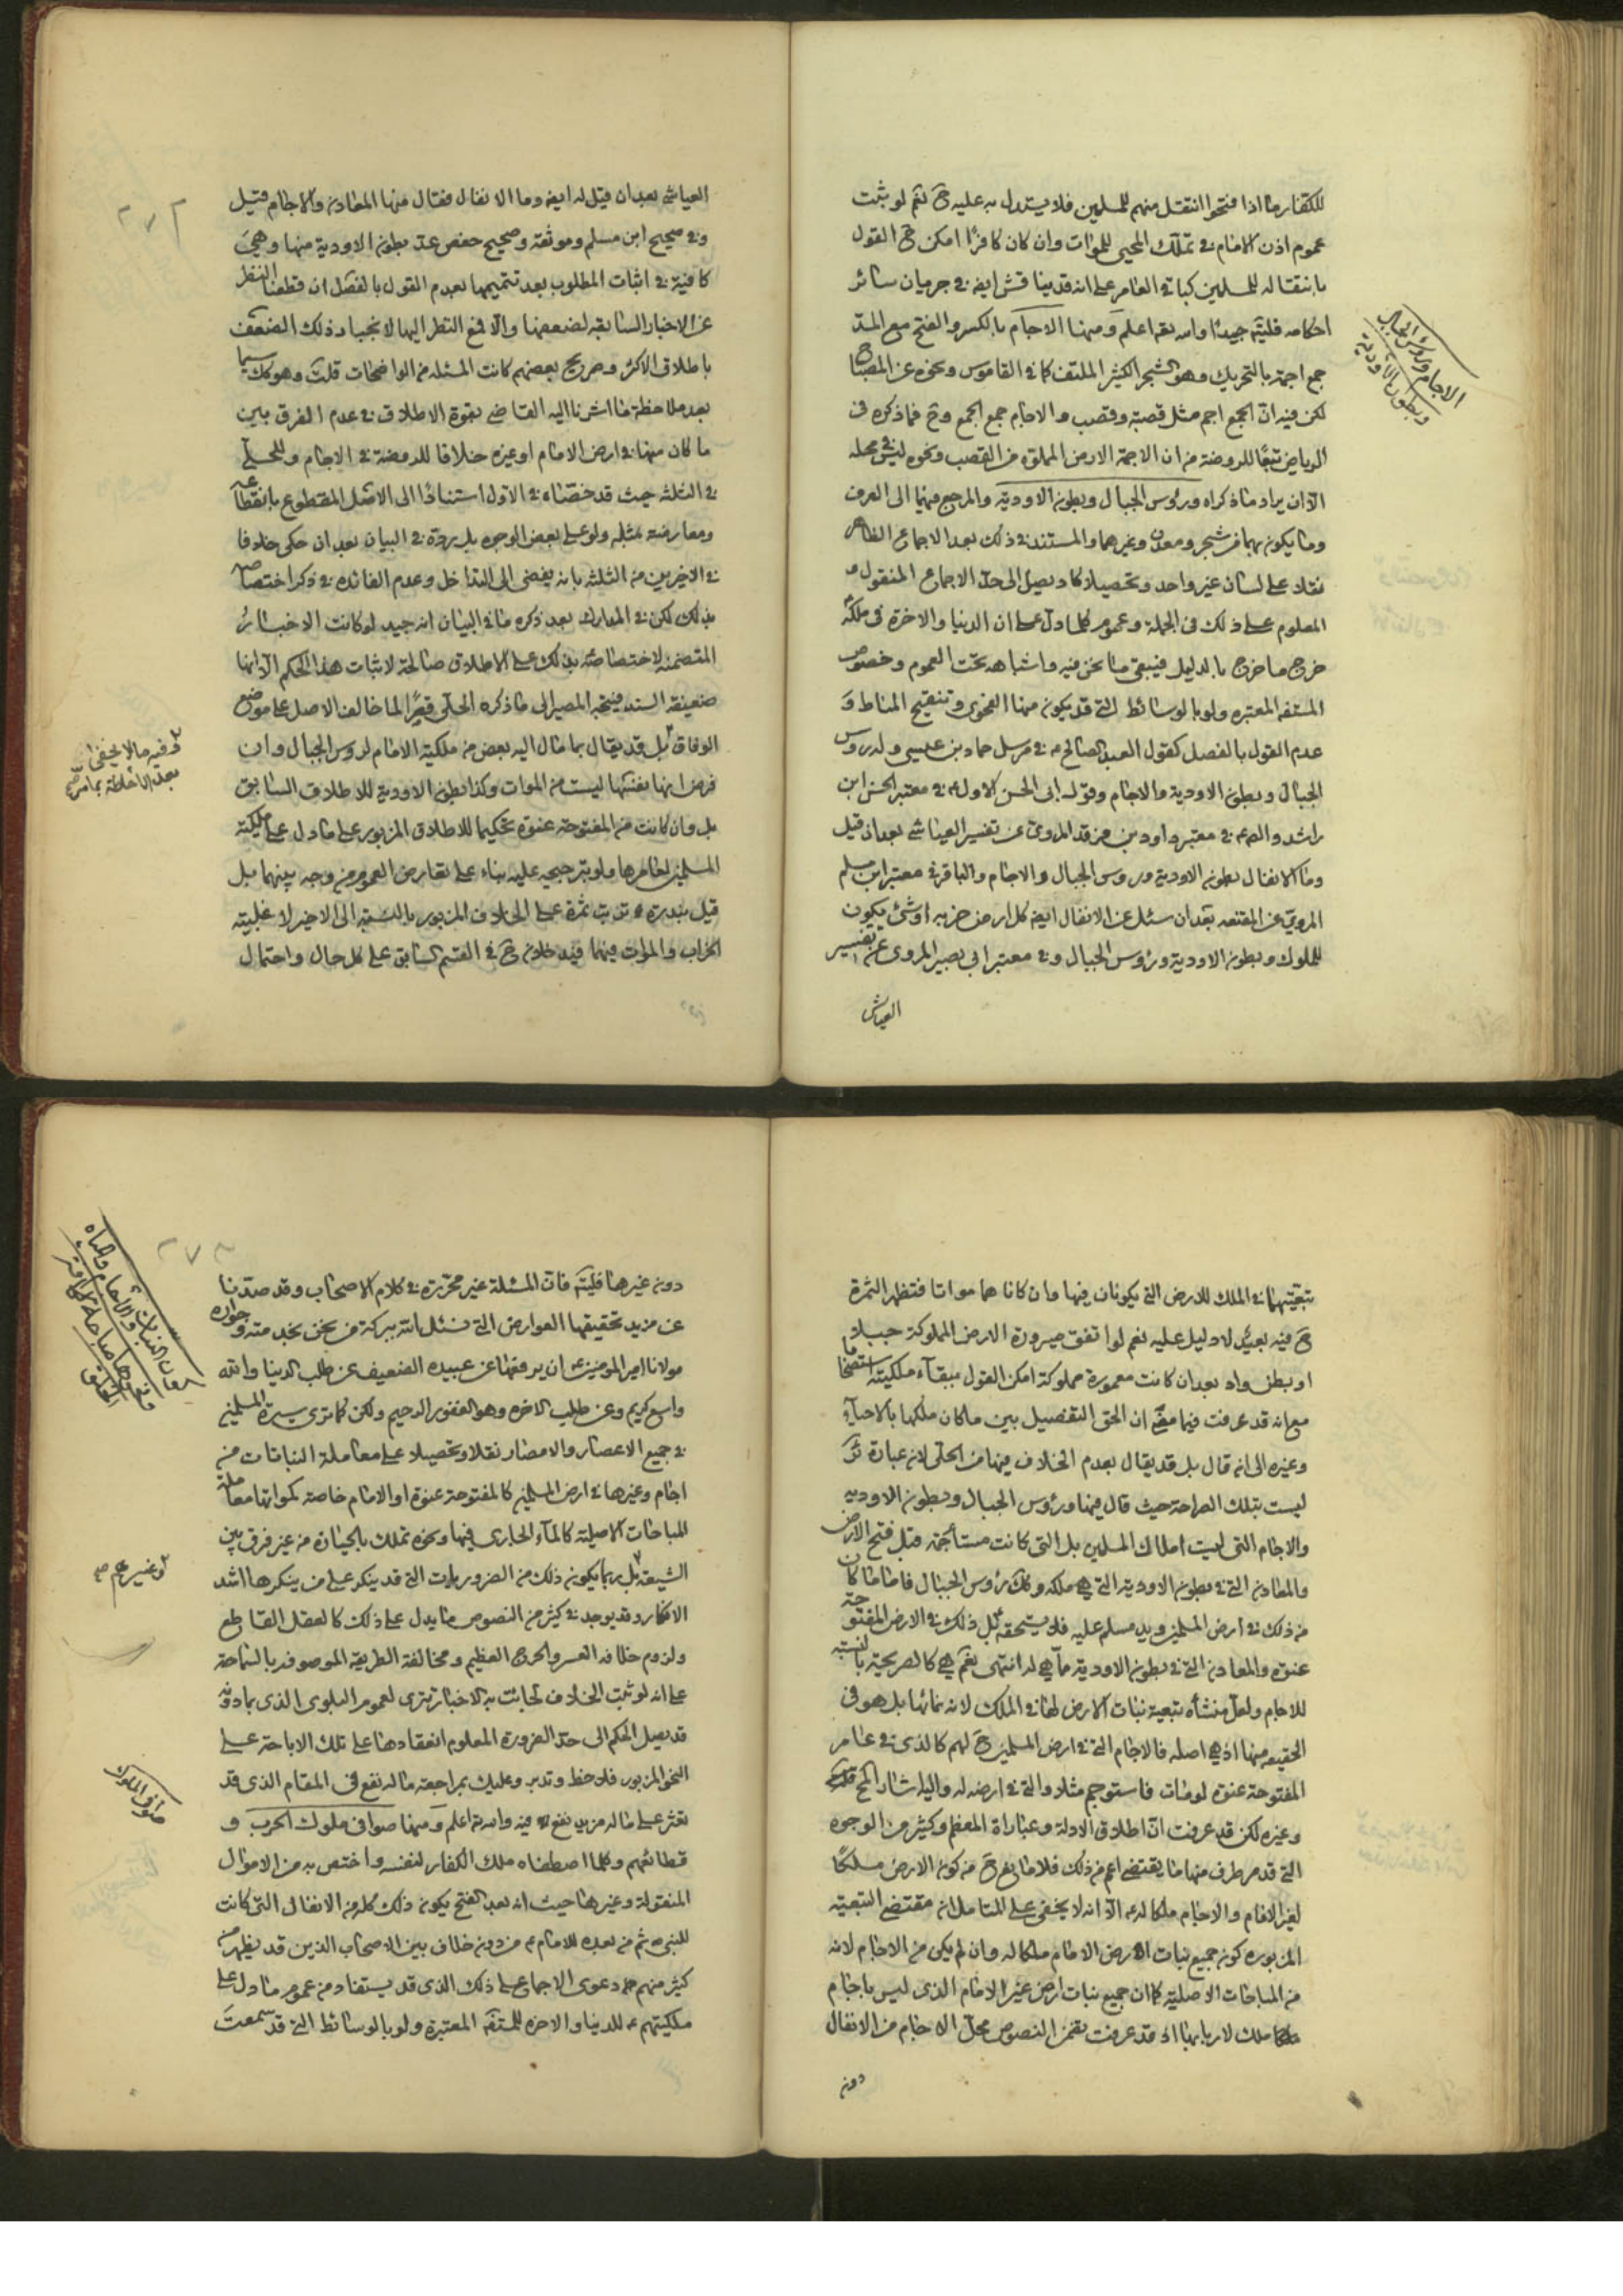 للكفار ما اذا فتحوا انتقل منهم للمسلمين فلا يستدل به عليه ح نعم لو ثبت
عموم اذن الامام في تملك المحيي للموات وان كان كافرا امكن ح القول
بانتقاله للمسلمين كباقي العامر على انه قد يناقش ايضا في جريان سائر
احكامه فليتم جيدا والله يعم اعلم ومنها الاجام بالكسر والفتح مع المد
جمع اجمة بالتحريك وهو الشجر الكثير الملتف كما في القاموس ونحوه عن المصباح
لكن فيه ان الجمع اجم مثل قصبة وقصب والاجام جمع الجمع وح فما ذكره في
الرياض تبعا للروضة من ان الاجمة الارض المملوة من القصب ونحوه ليس في محله
الا ان يراد ما ذكراه ورؤس الجبال وبطون الاودية والمرجع فيهما الى العرف
وما يكون بهما من شجر ومعدن وغيرهما والمستند في ذلك بعد الاجماع الظاهر
نقلا على لسان غير واحد وتحصيلا كاد يصل الى حد الاجماع المنقول
المعلوم على ذلك في الجملة وعموم كلما دل على ان الدنيا والاخرة في ملكه
خرج ما خرج بالدليل فيبقى ما نحن فيه واشباهه تحت العموم وخصوص
المستفه المعتبره ولو بالوسائط التي قد يكون منها الفحوى وتنقيح المناط و
عدم القول بالفصل كقول العبد الصالح ع في مرسل حماد بن عيسى وله رؤس
الجبال وبطون الاودية والاجام وقول ابي الحسن الاول ع في معتبر الحسن ابن
راشد والصم ع في معتبر داود بن فرقد المروي عن تفسير العياشي بعد ان قيل
وما الانفال بطون الاودية ورؤس الجبال والاجام والباقر في معتبر ابن مسلم
المروي عن المقنعه بعد ان سئل عن الانفال ايضا كل ارض خربه او شئ يكون
للملوك وبطون الاودية ورؤس الجبال وفي معتبر ابي بصير المروي عن تفسير
العياشي
الاجام ورؤس الجبال
وبطون الاودية
العياشي بعد ان قيل له ايضا وما الانفال فقال منها المعادن والاجام قيل
وفي صحيح ابن مسلم وموثقه وصحيح حفص عد بطون الاودية منها وهي
كافية في اثبات المطلوب بعد تتميمها بعدم القول بالفصل ان قطعنا النظر
عن الاخبار السابقه لضعفها والا فمع النظر اليها لانجبار ذلك الضعف
باطلاق الاكثر وصريح بعضهم كانت المسئله من الواضحات قلت وهو كك سيما
بعد ملاحظة ما اشرنا اليه القاضي بقوة الاطلاق في عدم الفرق بين
ما كان منها في ارض الامام او غيره خلافا للروضة في الاجام وللحلي
في الثلثه حيث قد خصاه في الاول استنادا الى الاصل المقطوع بانقطاعه
ومعارضته بمثله ولو على بعض الوجوه بل رده في البيان بعد ان حكى خلافا
في الاخيرين من الثلثه بانه يفضى الى التداخل وعدم الفائده في ذكر اختصاصه
بذلك لكن في المدارك بعد ذكره ما في البيان انه جيد لو كانت الاخبار
المتضمنه لاختصاصه بذلك على الاطلاق صالحة لاثبات هذا الحكم الا انها
ضعيفة السند فيتجه المصير الى ما ذكره الحلي قصرا لما خالف الاصل على موضع
الوفاق بل قد يقال بما مال اليه بعض من ملكية الامام لرؤس الجبال وان
فرض انها بنفسها ليست من الموات وكذا بطون الاودية للاطلاق السابق
بل وان كانت من المفتوحة عنوة تحكيما للاطلاق المزبور على ما دل على ملكية
المسلمين لعامرها ولو بترجيحه عليه بناء على تعارض العموم من وجه بينهما بل
قيل بندرة ترتب ثمرة على الخلاف المزبور بالنسبة الى الاخير لاغلبية
الخراب والموات فيهما فيدخلان ح في القسم السابق على كل حال واحتمال
وفيه ما لا يخفى
بعد الاحاطة بما مر
تبعيتهما في الملك للارض التي يكونان فيها وان كانا هما مواتا فتظهر الثمرة
ح فيه بعيد لا دليل عليه نعم لو اتفق صيرورة الارض المملوكة جبلا
او بطن واد بعد ان كانت معمورة مملوكة امكن القول ببقاء ملكيته استصحابا
مع انه قد عرفت فيما مضى ان الحق التفصيل بين ما كان ملكها بالاحياء
وغيره الى انه قال بل قد يقال بعدم الخلاف فيهما من الحلي لان عبارة ئر
ليست بتلك الصراحة حيث قال فيها ورؤس الجبال وبطون الاوديه
والاجام التي ليست املاك المسلمين بل التي كانت مستأجمة قبل فتح الارض
والمعادن التي في بطون الاودية التي هي ملكه وكك رؤس الجبال فاما ما كان
من ذلك في ارض المسلمين ويد مسلم عليه فلا يستحقه بل ذلك في الارض المفتوحة
عنوة والمعادن التي في بطون الاودية مما هي له انتهى نعم هي كالصريحة بالنسبة
للاجام ولعل منشأه تبعية نبات الارض لها في الملك لانه نمائها بل هو في
الحقيقه منها اذ هي اصله فالاجام التي في ارض المسلمين ح لهم كالذي في عامر
المفتوحة عنوة لو مات فاستوجم مثلا والتي في ارضه له واليه اشار
وغيره لكن قد عرفت ان اطلاق الادلة وعبارة المعظم وكثير من الوجوه
التي قد مر طرف منها مما يقتضى اعم من ذلك فلا مانع ح من كون الارض ملكا
لغير الامام والاجام ملكا له ع الا انه لا يخفى على المتامل ان مقتضى التبعيه
المزبوره كون جميع نبات ارض الامام ملكا له وان لم يكن من الاجام لانه
من المباحات الاصلية كما ان جميع نبات ارض غير الامام الذي ليس باجام
ملك لاربابها اذ قد عرفت تضمن النصوص محل الاجام من الانفال
دون
دون غيرها فليتم فان المسئلة غير محررة في كلام الاصحاب وقد صدنا
عن مزيد تحقيقها العوارض التي نسئل الله ببركة من نحن بخدمته وجواره
مولانا امير المؤمنين ع ان يرفعها عن عبيده الضعيف عن طلب الدنيا والله
واسع كريم وعن طلب الاخره وهو الغفور الرحيم ولكن كما ترى سيرة المسلمين
في جميع الاعصار والامصار نقلا وتحصيلا على معاملة النباتات من
اجام وغيرها في ارض المسلمين كالمفتوحة عنوة او الامام خاصة كمواتها معاملة
المباحات الاصلية كالماء الجاري فيها ونحوه تملك بالحيازة من غير فرق بين
الشيعة بل ربما يكون ذلك من الضروريات التي قد ينكر على من ينكرها اشد
الانكار وقد يوجد في كثير من النصوص ما يدل على ذلك كالعقل القاطع
ولزوم خلافه العسر والحرج العظيم ومخالفة الطريقة الموصوفه بالسماحة
على انه لو ثبت الخلاف لجائت به الاخبار تترى لعموم البلوى الذي بما دونه
قد يصل الحكم الى حد الضرورة المعلوم انعقادها على تلك الاباحة على
النحو المزبور فلاحظ وتدبر وعليك بمراجعة ما له نفع في المقام الذي قد
تعثر على ما له مزيد نفع فيه والله يعم اعلم ومنها صوافي ملوك الحرب و
قطائعهم وكلما اصطفاه ملك الكفار لنفسه واختص به من الاموال
المنقولة وغيرها حيث انه بعد الفتح يكون ذلك كله من الانفال التي كانت
للنبي ص ثم من بعده للامام ع من دون خلاف بين الاصحاب الذين قد يظهر من
كثير منهم دعوى الاجماع على ذلك الذي قد يستفاد من عموم ما دل على
ملكيتهم ع للدنيا والاخره للمستفه المعتبرة ولو بالوسائط التي قد سمعت
وغيرهم صح
صوافي الملوك